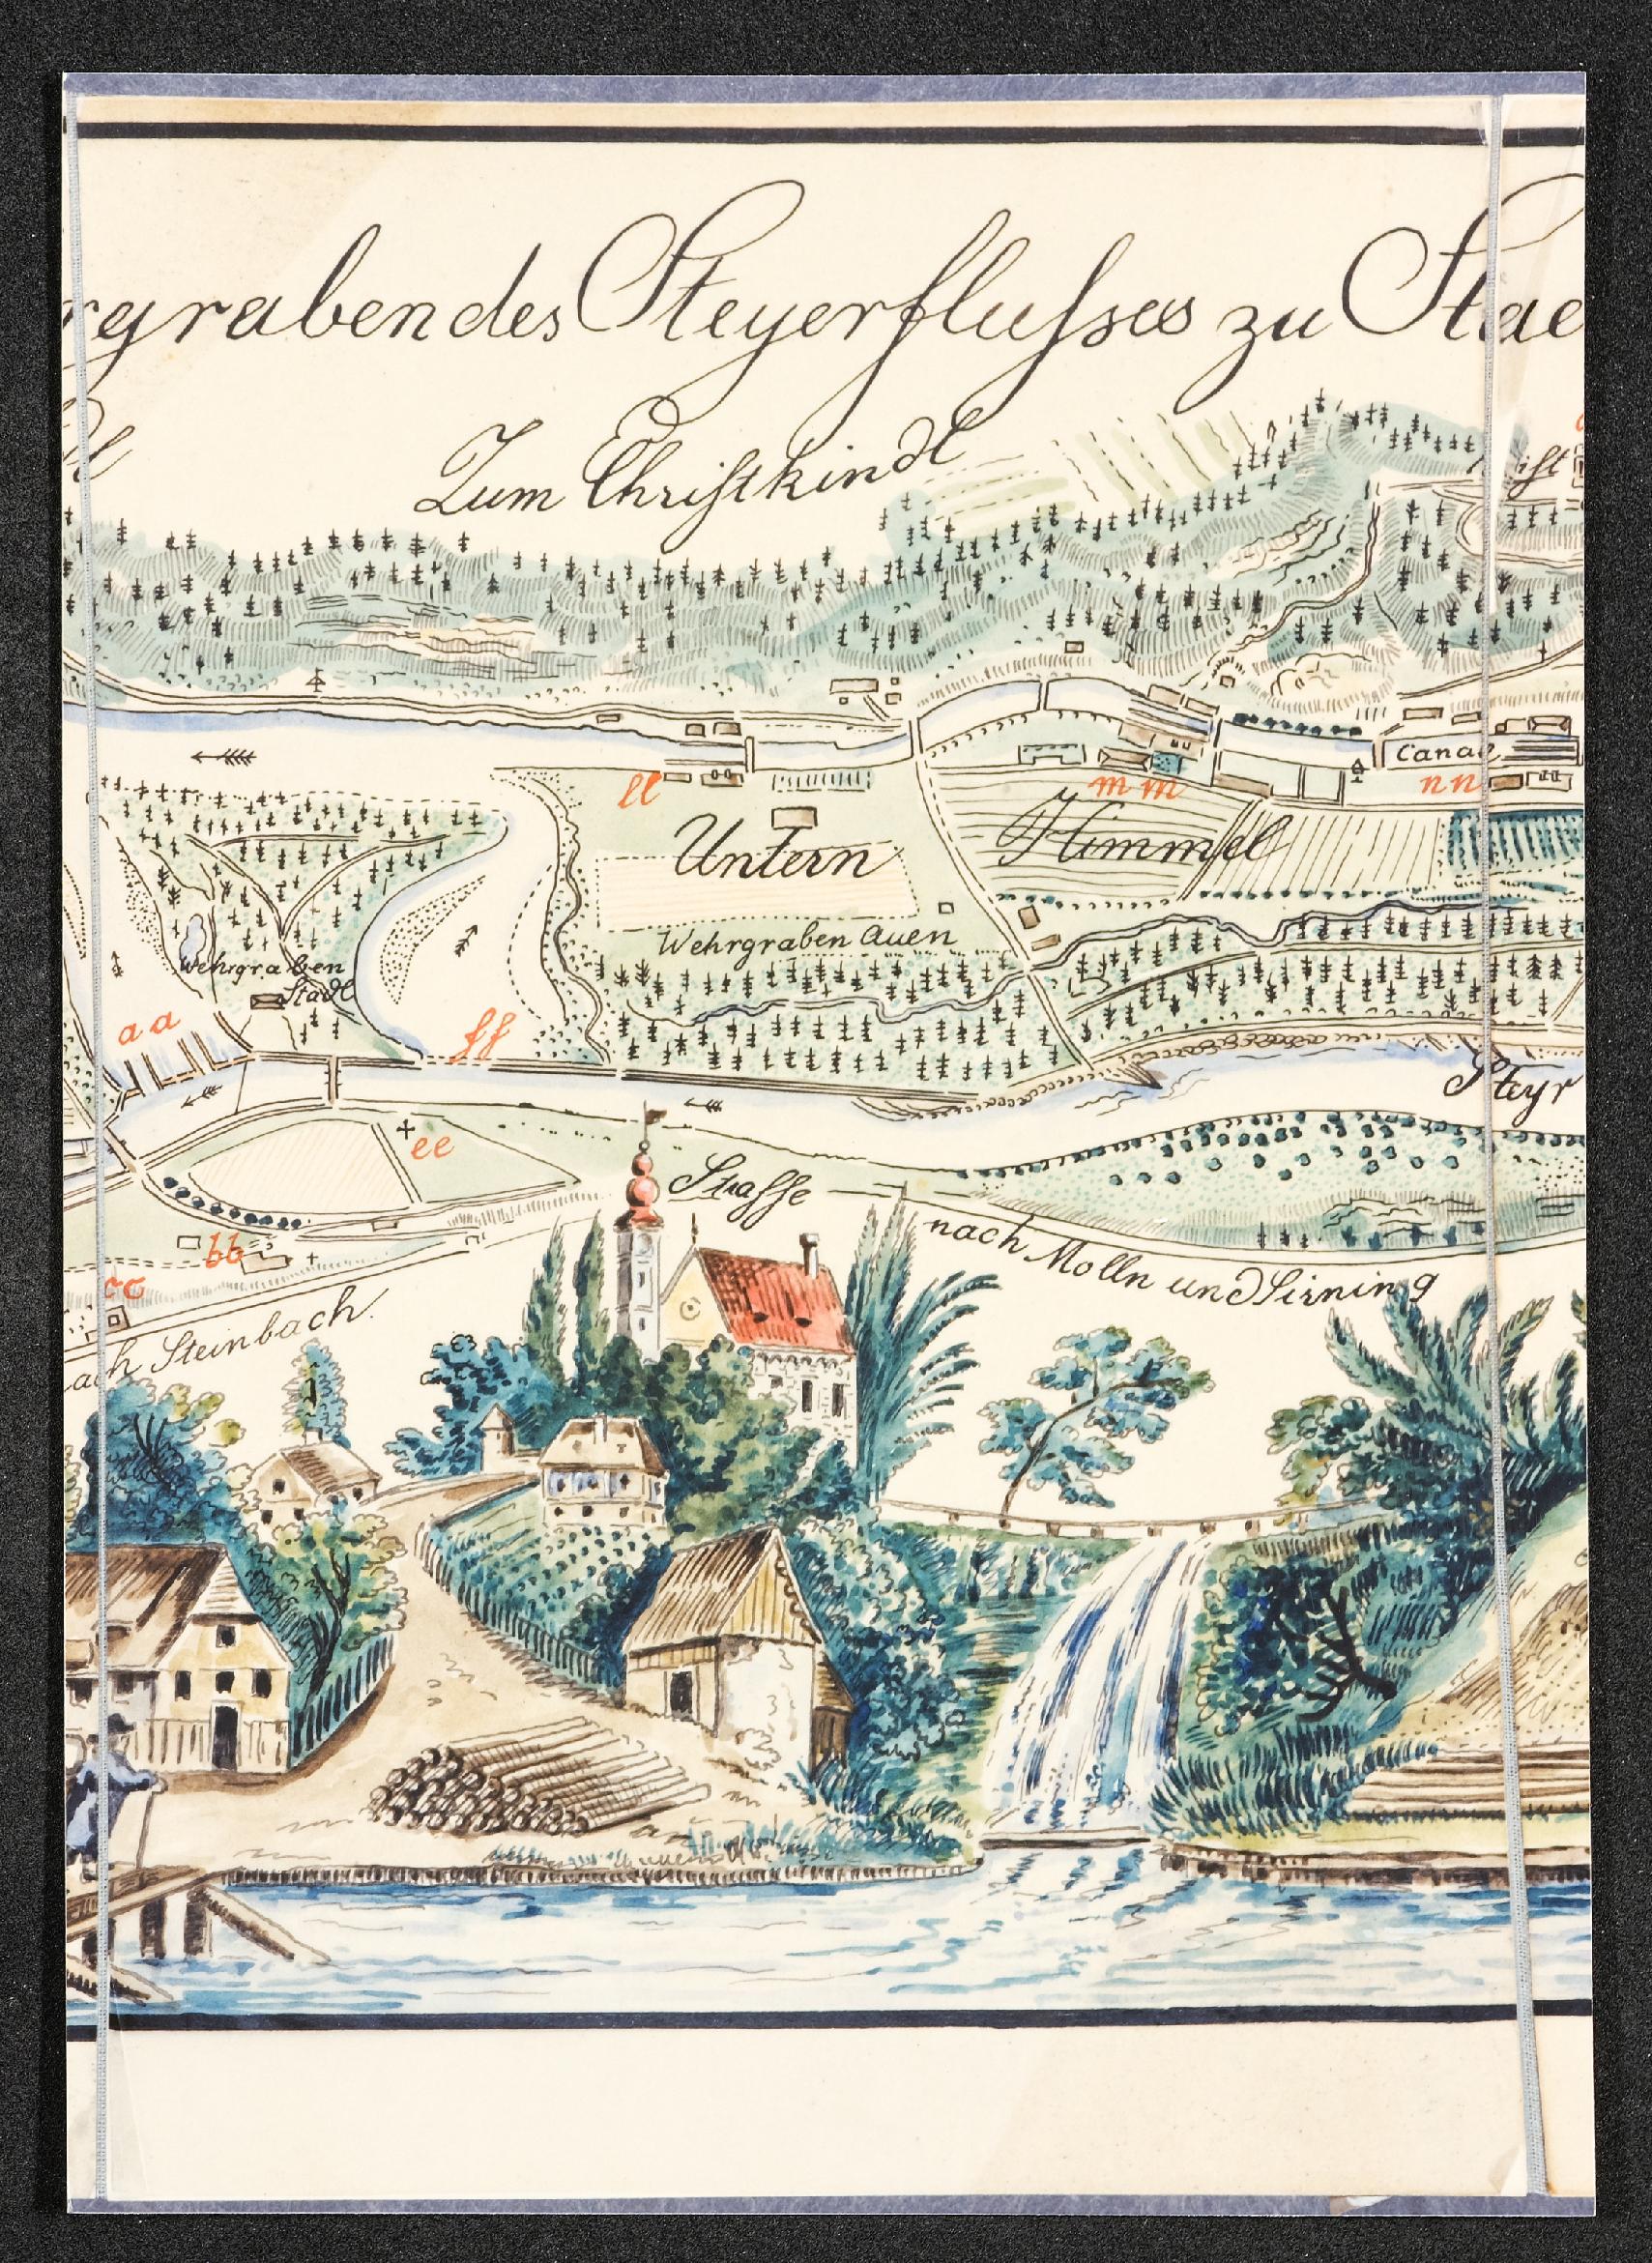 rgraben des Steyerflusses zu Stae
Zum Christkindl
ist
Canal
ll
mm
nn
Untern
Himmel
Wehrgraben Auen
Wehrgraben
Stadl
aa
ff
Steyr
ee
Strasse
nach Molln und Sirning
bb
cc
ach Steinbach.